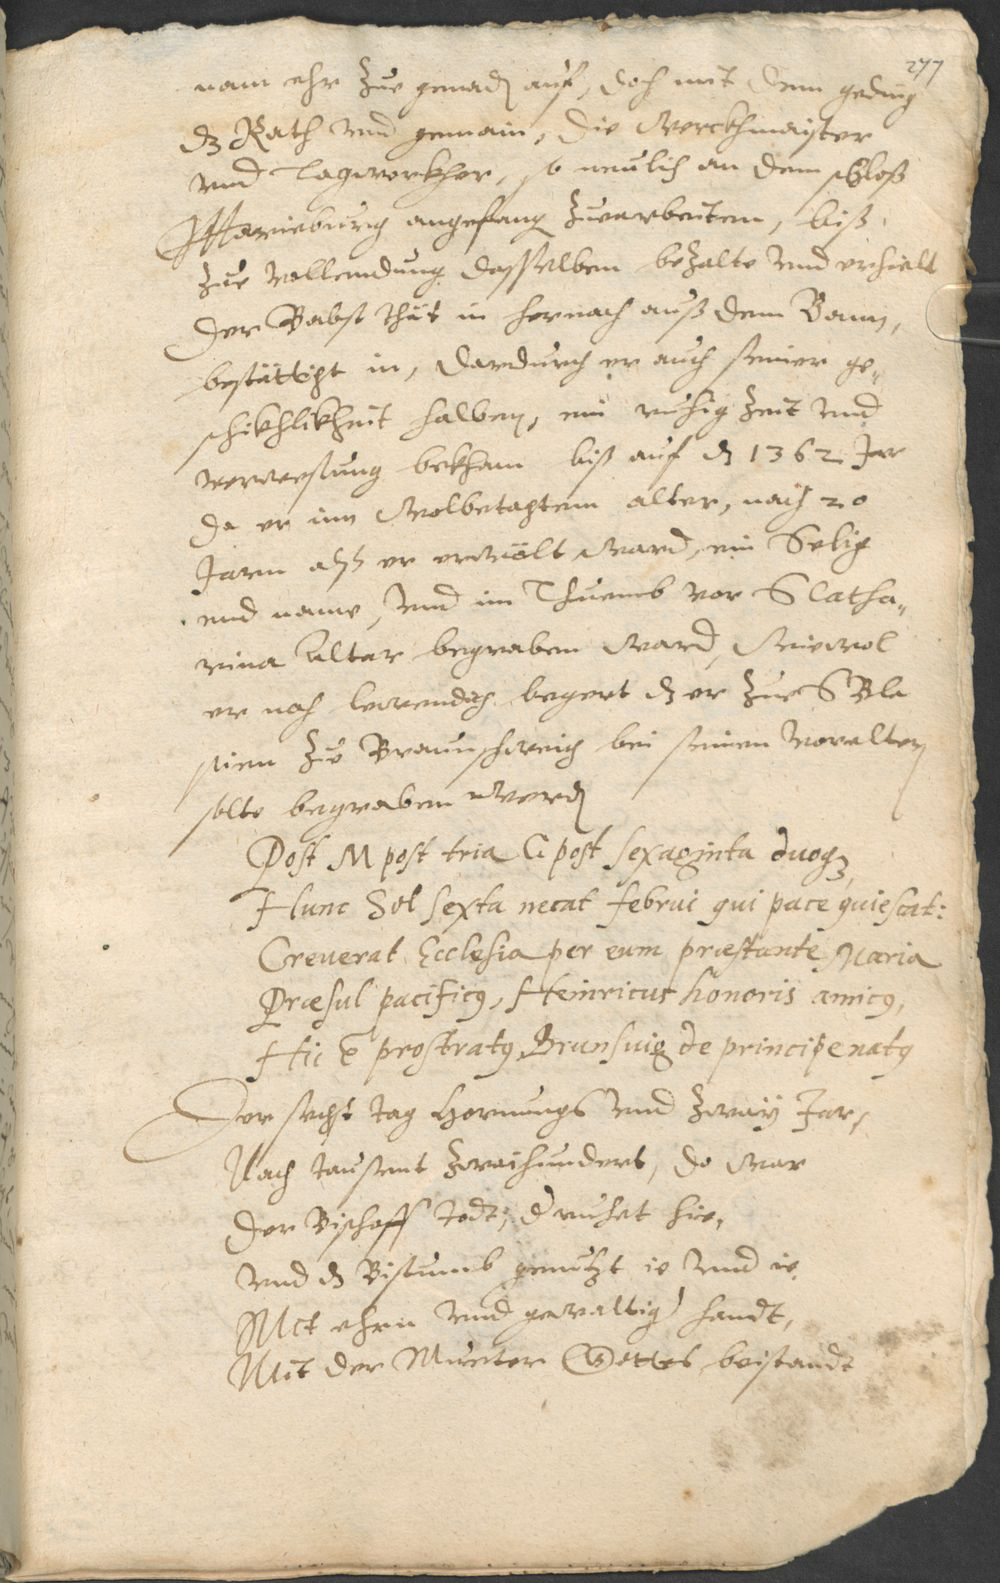 277
nam ehr zue gnadn auf, doch mit dem geding
dz Rath vnd gemain, die Werckhmaister
vnd Tagwerkher, so neulich an dem schloss
Marieburg angefang zuearbeitem, biß
zue vollendung dasselben bezalte vnd erhielt
Der Babst thät in hernach auß dem Bann,
bestättigt in, dardurch er auch seiner ge„
schikhlikheit halben, ein ruhig Zeit vnd
verwesung bekham biß auf dz 1362 Jar
da er inn Wolbetagtem alter, nach 20
Jaren alß er erwölt ward, ein Selig
end name, vnd im Thuemb vor S Catha„
rina Altar begraben ward, Wiewol
er noch lewendich begert dz er zue S Bla
sien zu Braunschweig bei seinen voralten
solte begraben werdn
Post M post tria C post sexaginta duoqz,
Hunc Sol sexta necat februi qui pace quiescat:
Creuerat Ecclesia per eum præstante Maria
Præsul pacificq, Heinricus honoris amicq,
Hic ē prostratq Brunsuig de principe natq
Der sechst tag Hornungs vnd zwaÿ Jar,
Nach tausent zwaihundert, do war
Der Bischoff todt; d ruhet hie,
vnd dz Bistumb genutzt ie vnd ie.
Mit ehrn vnd gewaltig handt,
Mit der Mueter Gottes beistandt